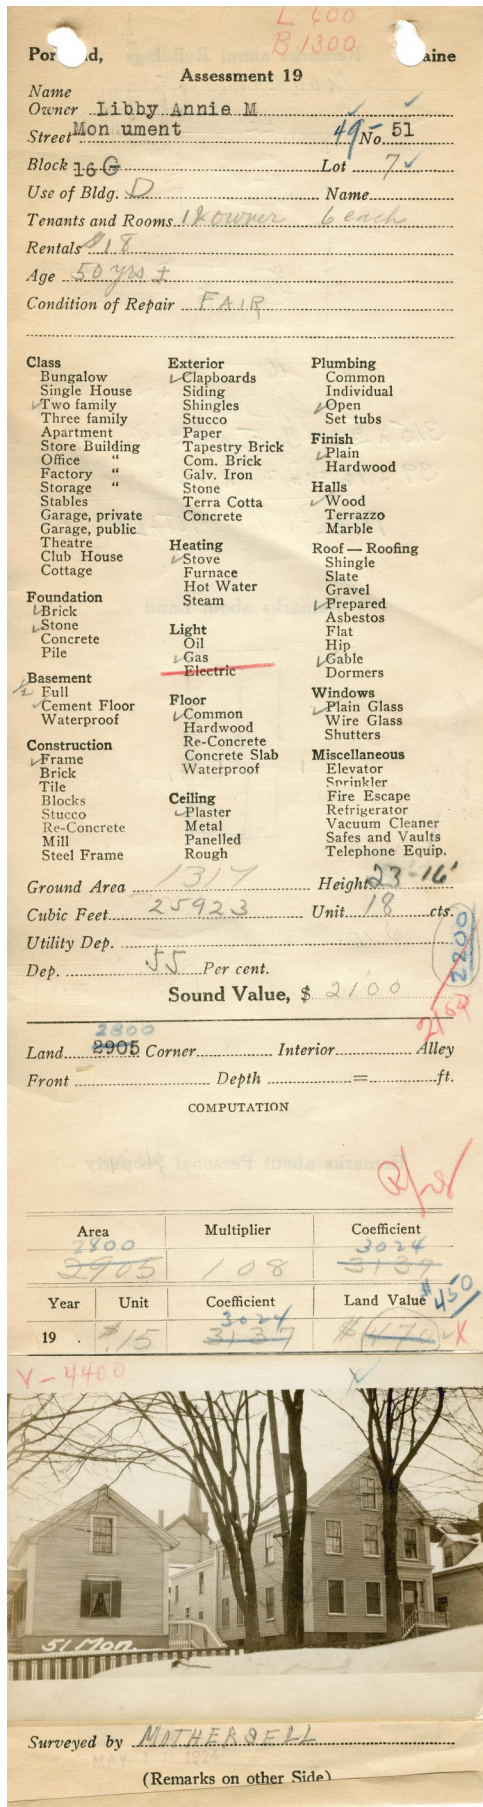 L 600
B 1300
Portland, Maine
Assessment 19
Name
Owner Libby Annie M
Street Mon ument 49 - No. 51
Block 16 G Lot 7
Use of Bldg. D Name
Tenants and Rooms 1 & owner 6 each
Rentals $18
Age 50 yrs ±
Condition of Repair FAIR
Class
Bungalow
Single House
✓Two family
Three family
Apartment
Store Building
Office "
Factory "
Storage "
Stables
Garage, private
Garage, public
Theatre
Club House
Cottage
Foundation
✓Brick
✓Stone
Concrete
Pile
Basement
½ Full
✓Cement Floor
Waterproof
Construction
✓Frame
Brick
Tile
Blocks
Stucco
Re-Concrete
Mill
Steel Frame
Exterior
✓Clapboards
Siding
Shingles
Stucco
Paper
Tapestry Brick
Com. Brick
Galv. Iron
Stone
Terra Cotta
Concrete
Heating
✓Stove
Furnace
Hot Water
Steam
Light
Oil
✓Gas
Electric
Floor
✓Common
Hardwood
Re-Concrete
Concrete Slab
Waterproof
Ceiling
✓Plaster
Metal
Panelled
Rough
Plumbing
Common
Individual
✓Open
Set tubs
Finish
✓Plain
Hardwood
Halls
✓Wood
Terrazzo
Marble
Roof — Roofing
Shingle
Slate
Gravel
✓Prepared
Asbestos
Flat
Hip
✓Gable
Dormers
Windows
✓Plain Glass
Wire Glass
Shutters
Miscellaneous
Elevator
Sprinkler
Fire Escape
Refrigerator
Vacuum Cleaner
Safes and Vaults
Telephone Equip.
Ground Area 1317 Height 23-16'
Cubic Feet 25923 Unit 18 cts.
Utility Dep.
2200
Dep. 55 Per cent.
Sound Value, $ 2100
2150
2800
Land 2905 Corner Interior Alley
Front Depth = ft.
COMPUTATION
Area Multiplier Coefficient
2800 3024
2905 108 3137
Year Unit Coefficient Land Value $450
3024
19 . $.15 3137 $470 X
V-4400
51 Mon.
Surveyed by MOTHERSELL
MAY 1924
(Remarks on other Side)